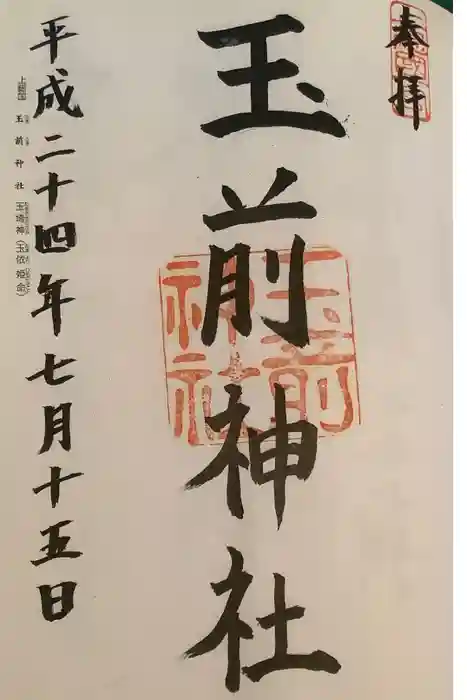 奉拝
玉前神社
玉前神社
平成二十四年七月十五日
玉前神社 玉埼神(玉依姫命)